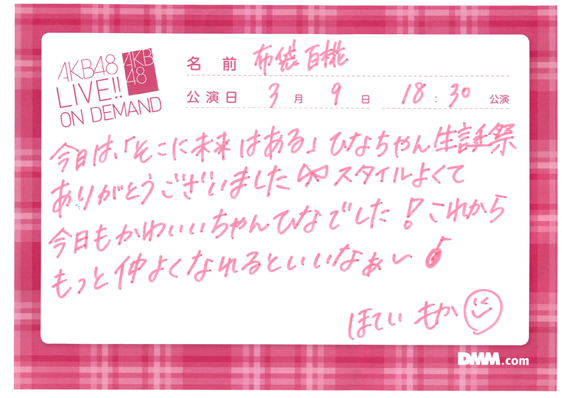 AKB48
LIVE!!
ON DEMAND
AKB
48
名前 布袋百椛
公演日 3月9日 18:30公演
今日は、「そこに未来はある」ひなちゃん生誕祭
ありがとうございました スタイルよくて
今日もかわいいちゃんひなでした!これから
もっと仲よくなれるといいなぁ〜
ほてい もか
DMM.com